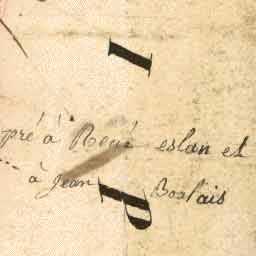 I
pré à René eslan et
à Jean Boslais
P